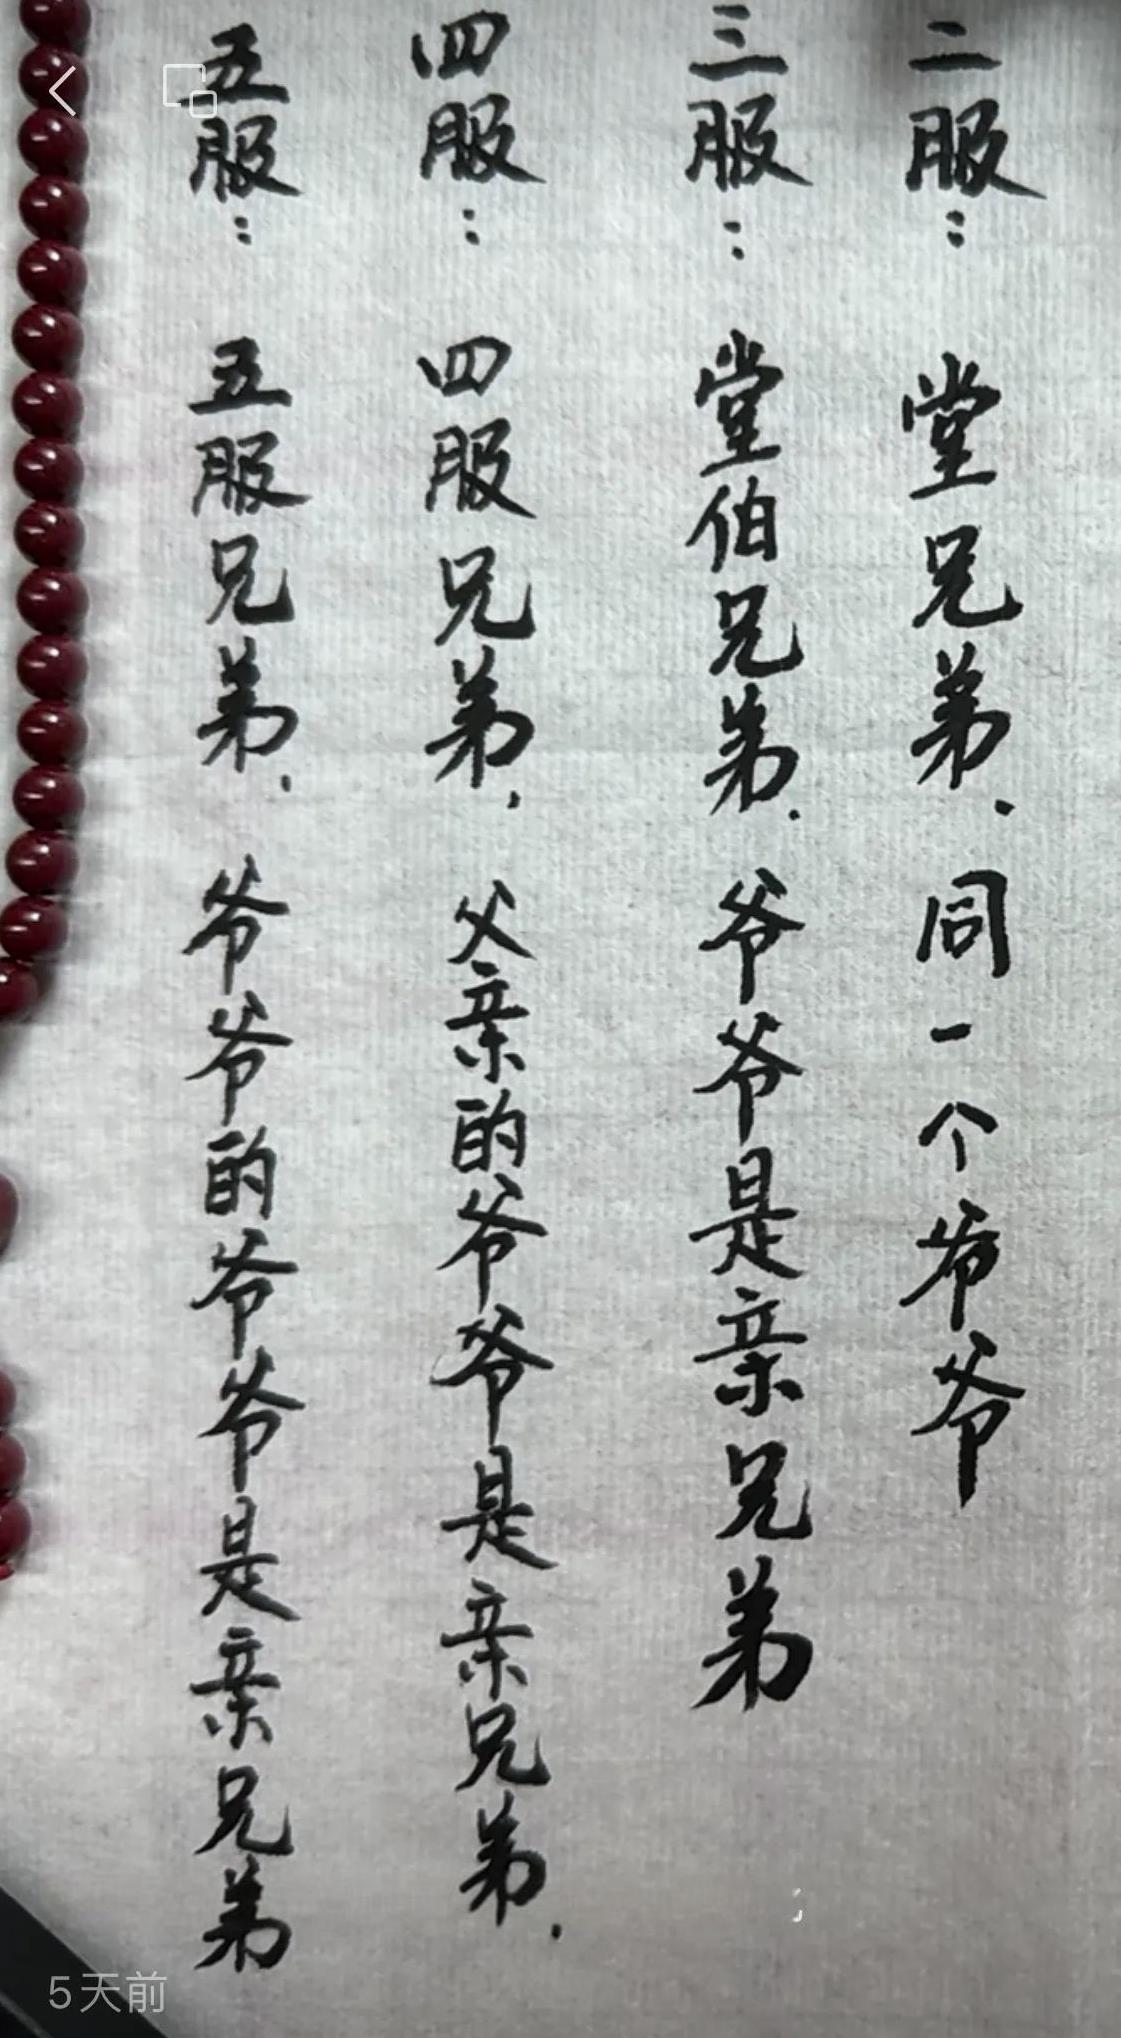 二服：堂兄弟.同一个爷爷
三服：堂伯兄弟.爷爷是亲兄弟
四服：四服兄弟，父亲的爷爷是亲兄弟.
五服：五服兄弟，爷爷的爷爷是亲兄弟
5天前